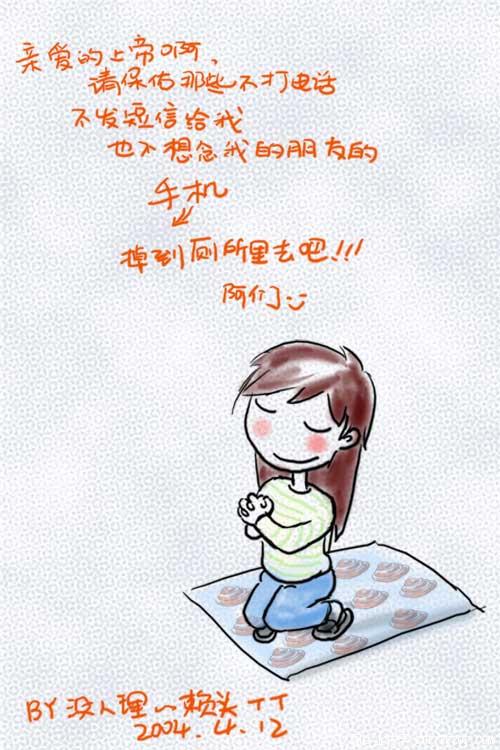 亲爱的上帝啊,
请保佑那些不打电话
不发短信给我
也不想念我的朋友的
手机
掉到厕所里去吧!!!
阿们
BY 没人理~赖头 TT
2004.4.12